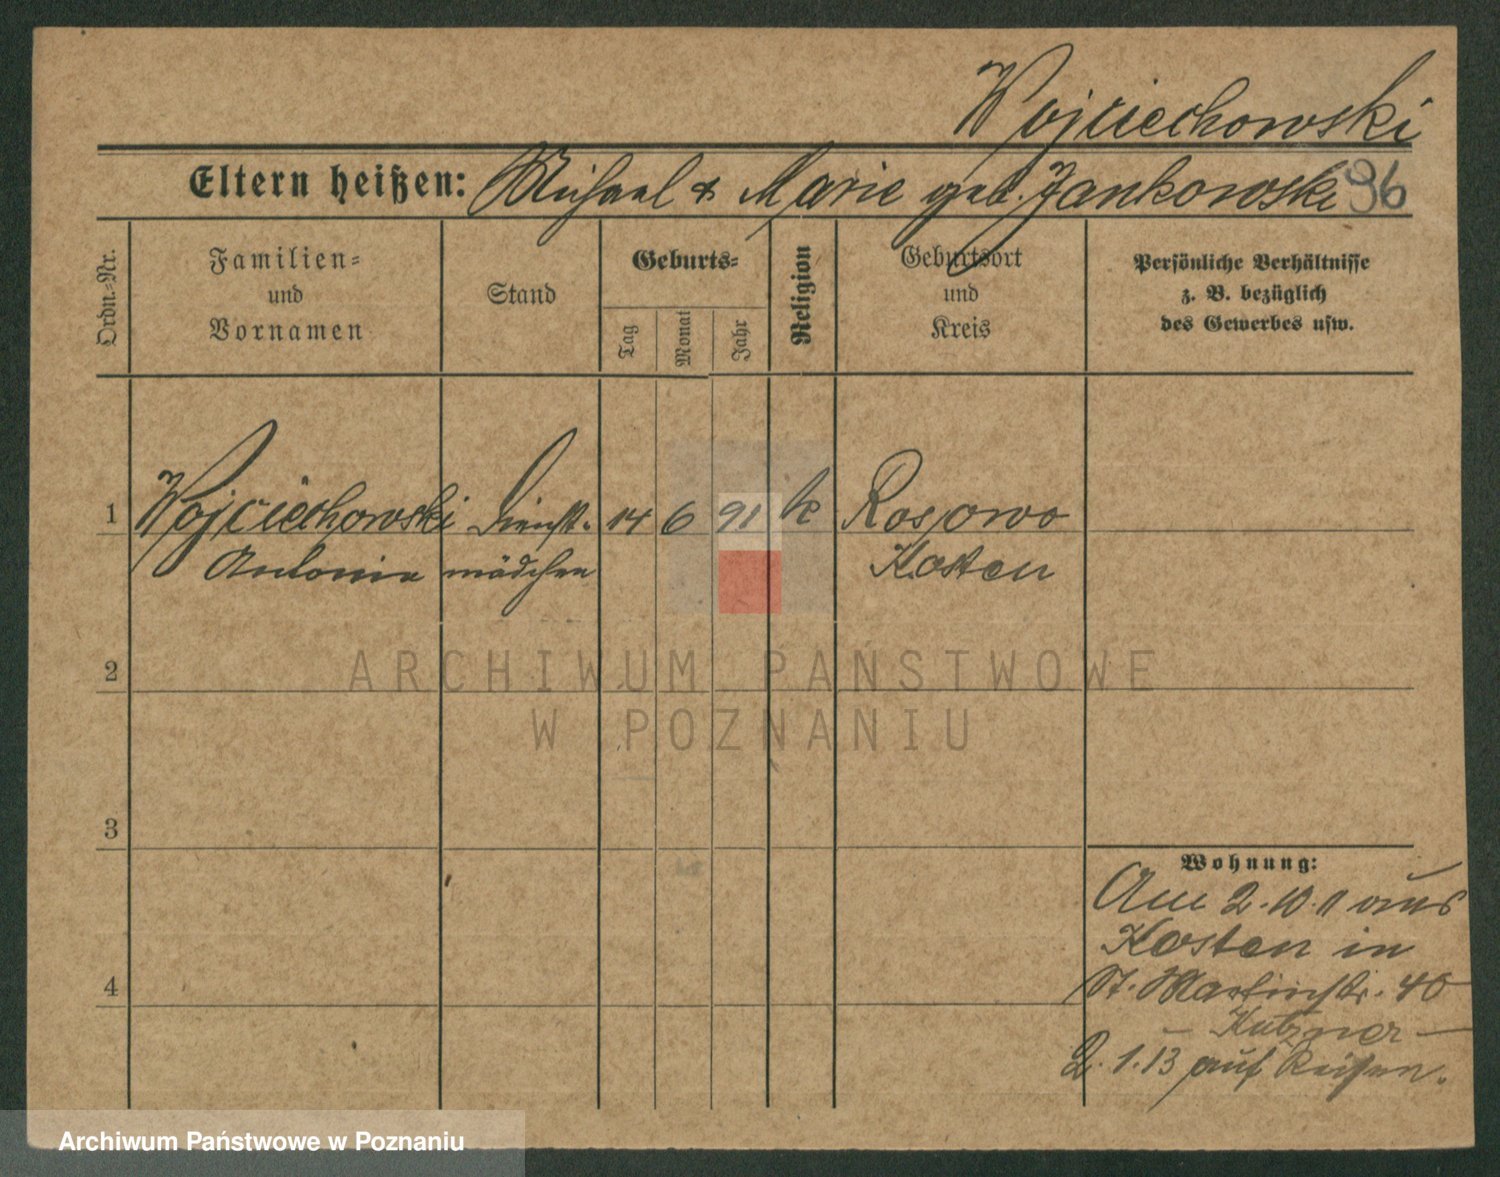 Wojciechowski
Eltern heißen: Michael & Marie geb. Jankowski 96
Ordn.-Nr.
Familien-
und
Vornamen
Stand
Geburts-
Tag
Monat
Jahr
Religion
Geburtsort
und
Kreis
Persönliche Verhältnisse
z. B. bezüglich
des Gewerbes usw.
1 Wojciechowski Dienst- 14 6 91 k Rosowo
Antonie mädchen Kosten
ARCHIWUM PAŃSTWOWE
W POZNANIU
2
3
4
Wohnung:
Am 2.10.11 aus
Kosten in
St. Martinstr. 40
Kutzner
2.1.13 auf Reisen.
Archiwum Państwowe w Poznaniu